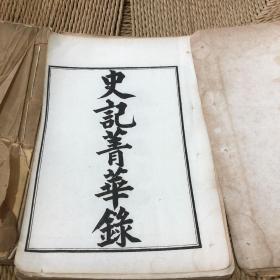 史記菁華錄